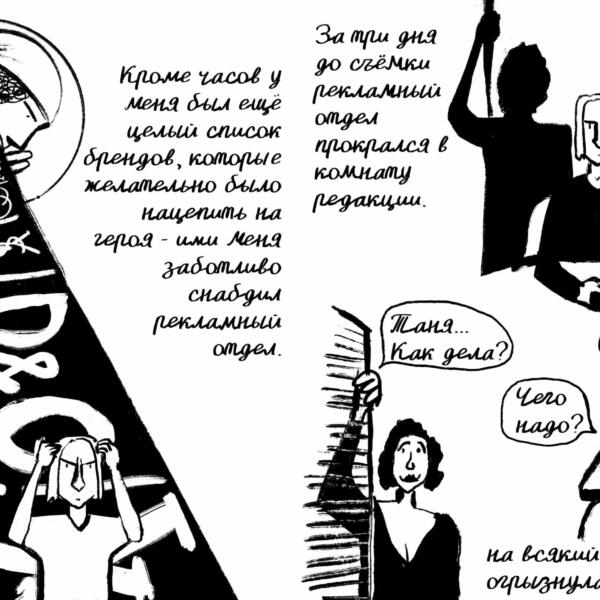 Кроме часов у
меня был ещё
целый список
брендов, которые
желательно было
нацепить на
героя - ими меня
заботливо
снабдил
рекламный
отдел.
D&G
За три дня
до съёмки
рекламный
отдел
прокрался в
комнату
редакции.
Таня...
Как дела?
Чего
надо?
на всякий
огрызнула